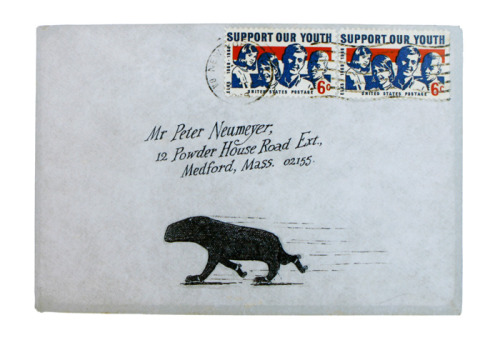 SUPPORT OUR YOUTH SUPPORT OUR YOUTH
ELKS 1868-1968 ELKS 1868-1968
6c 6c
UNITED STATES POSTAGE UNITED STATES POSTAGE
Mr Peter Neumeyer,
12 Powder House Road Ext.,
Medford, Mass. 02155.